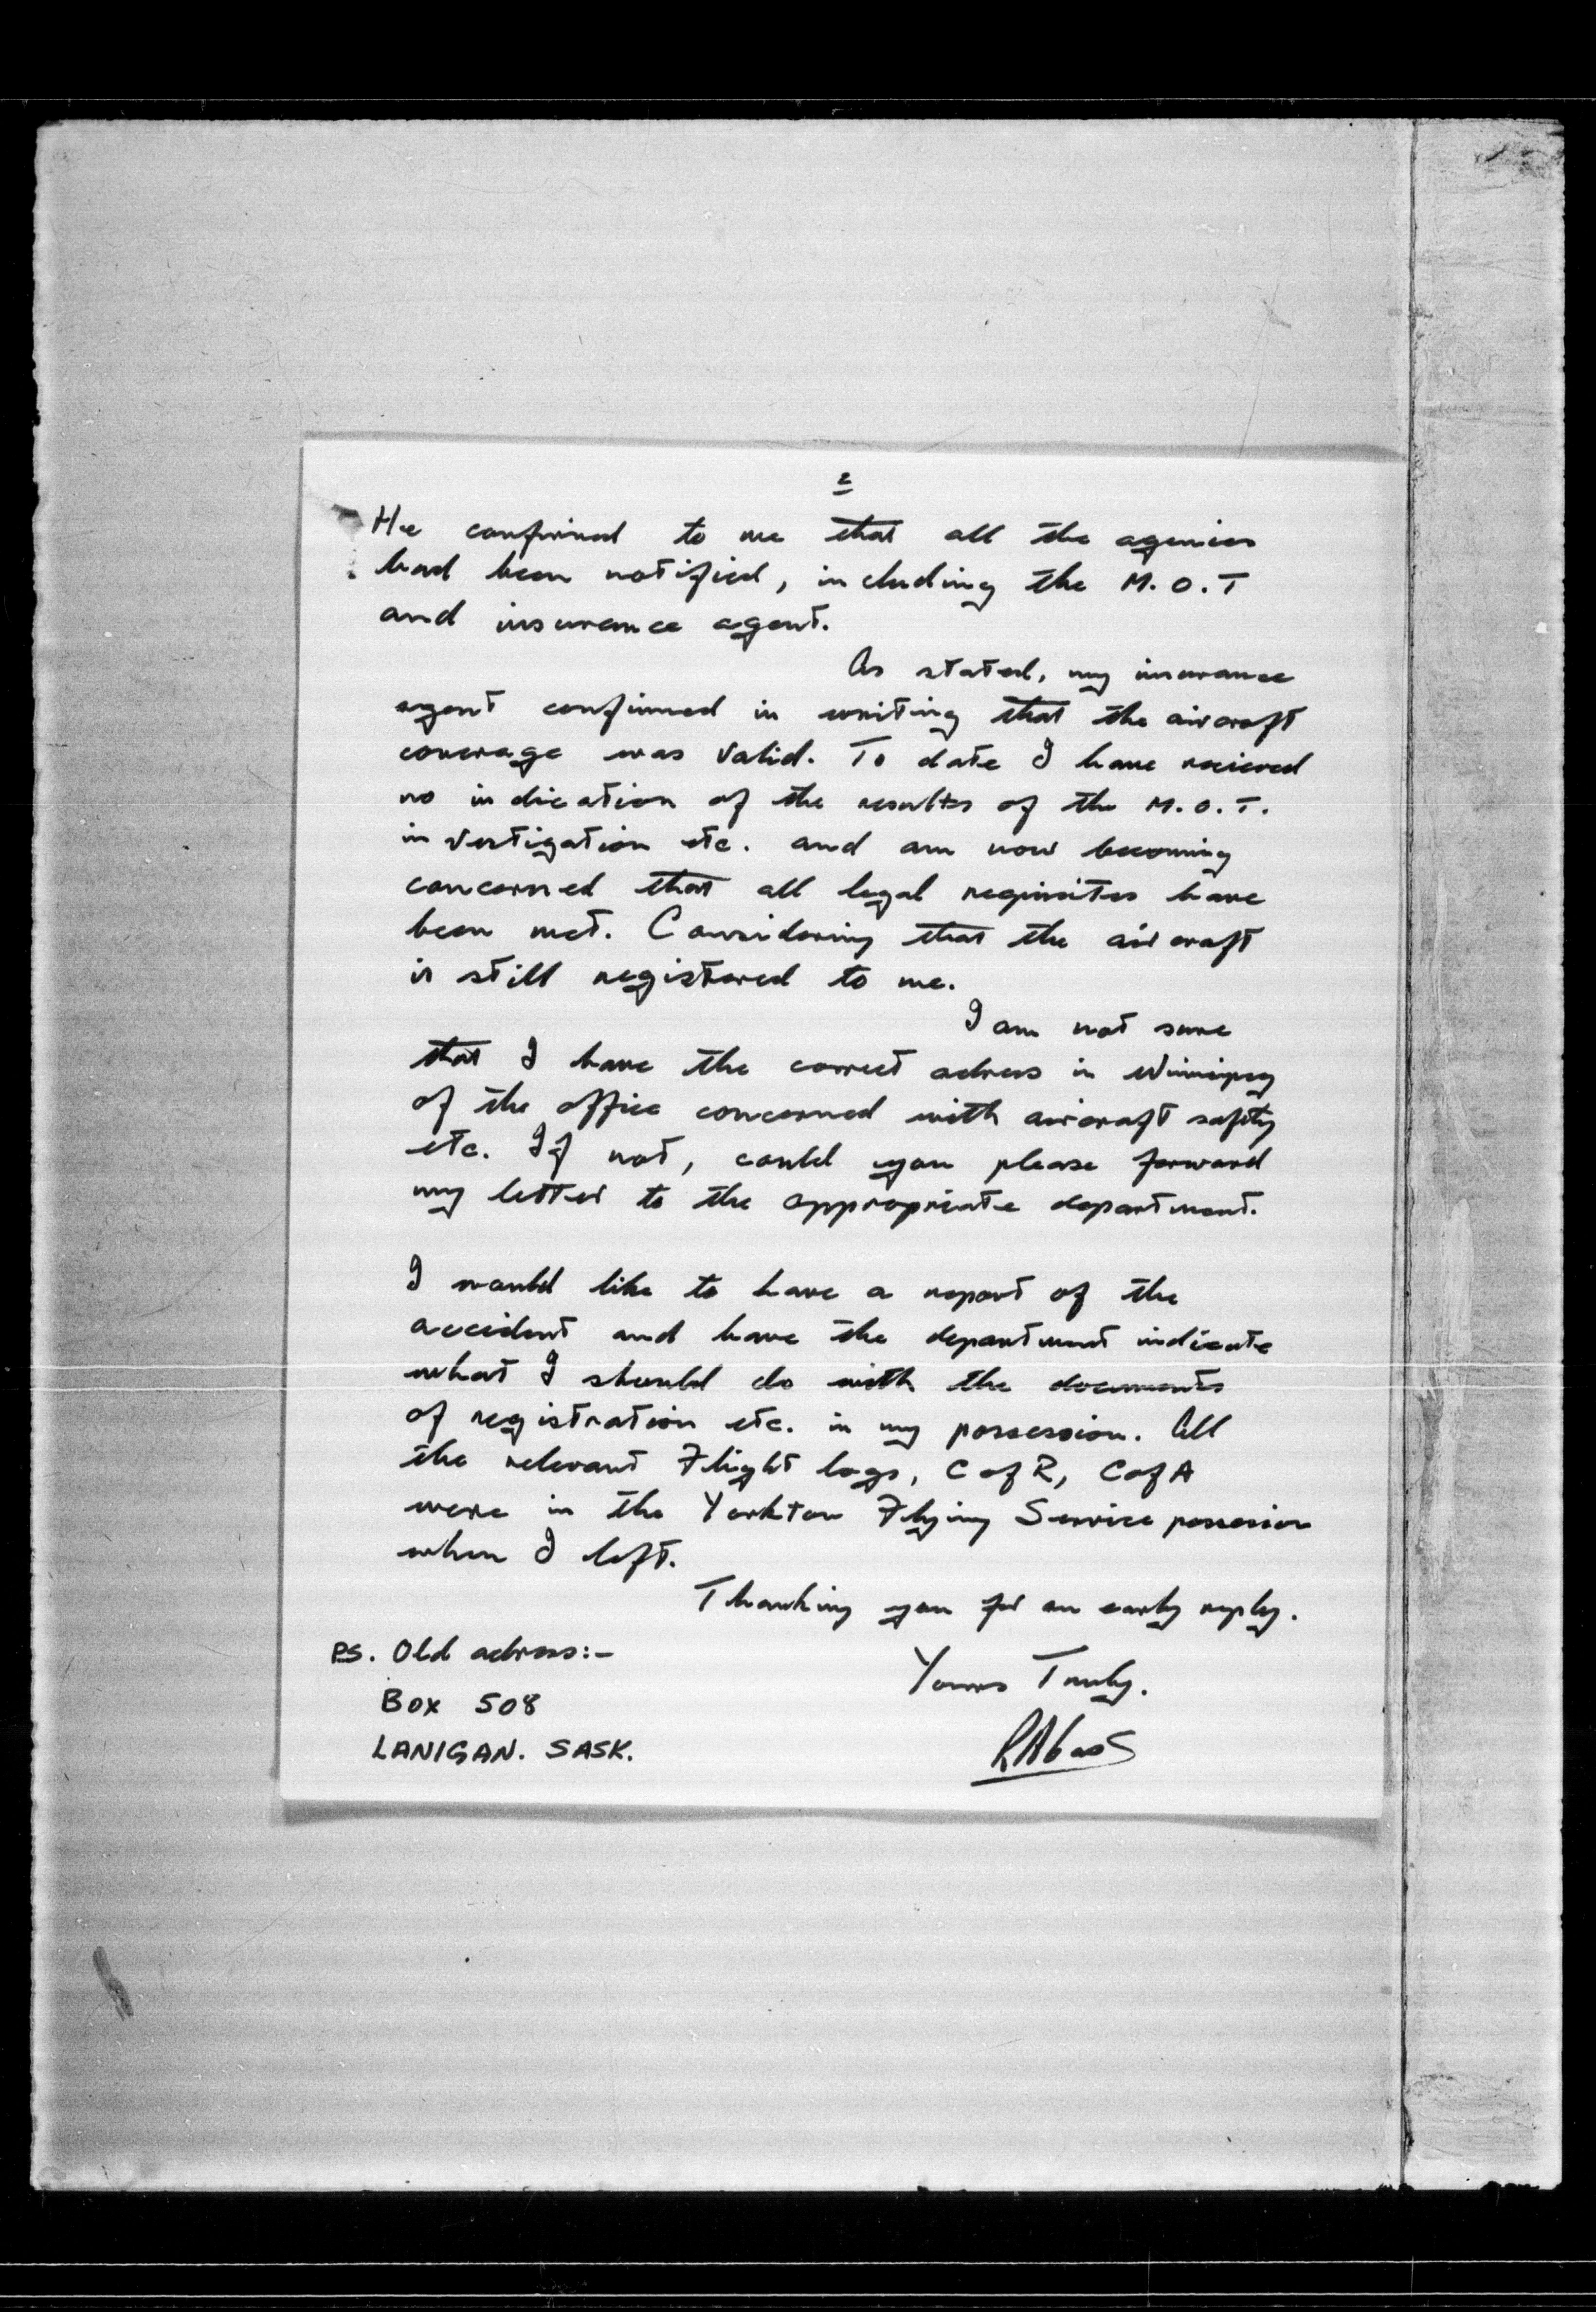 2
He confirmed to me that all the agencies
had been notified, including the M.O.T
and insurance agent.
As stated, my insurance
agent confirmed in writing that the aircraft
coverage was valid. To date I have recieved
no indication of the results of the M.O.T.
investigation etc. and am now becoming
concerned that all legal requisites have
been met. Considering that the aircraft
is still registered to me.
I am not sure
that I have the correct adress in Winnipeg
of the office concerned with aircraft safety
etc. If not, could you please forward
my letter to the appropriate department.
I would like to have a report of the
accident and have the department indicate
what I should do with the documents
of registration etc. in my possession. All
the relevant Flight logs, C of R, C of A
were in the Yorkton Flying Service possession
when I left.
Thanking you for an early reply.
PS. Old adress:-
Yours Truly.
Box 508
LANIGAN. SASK.